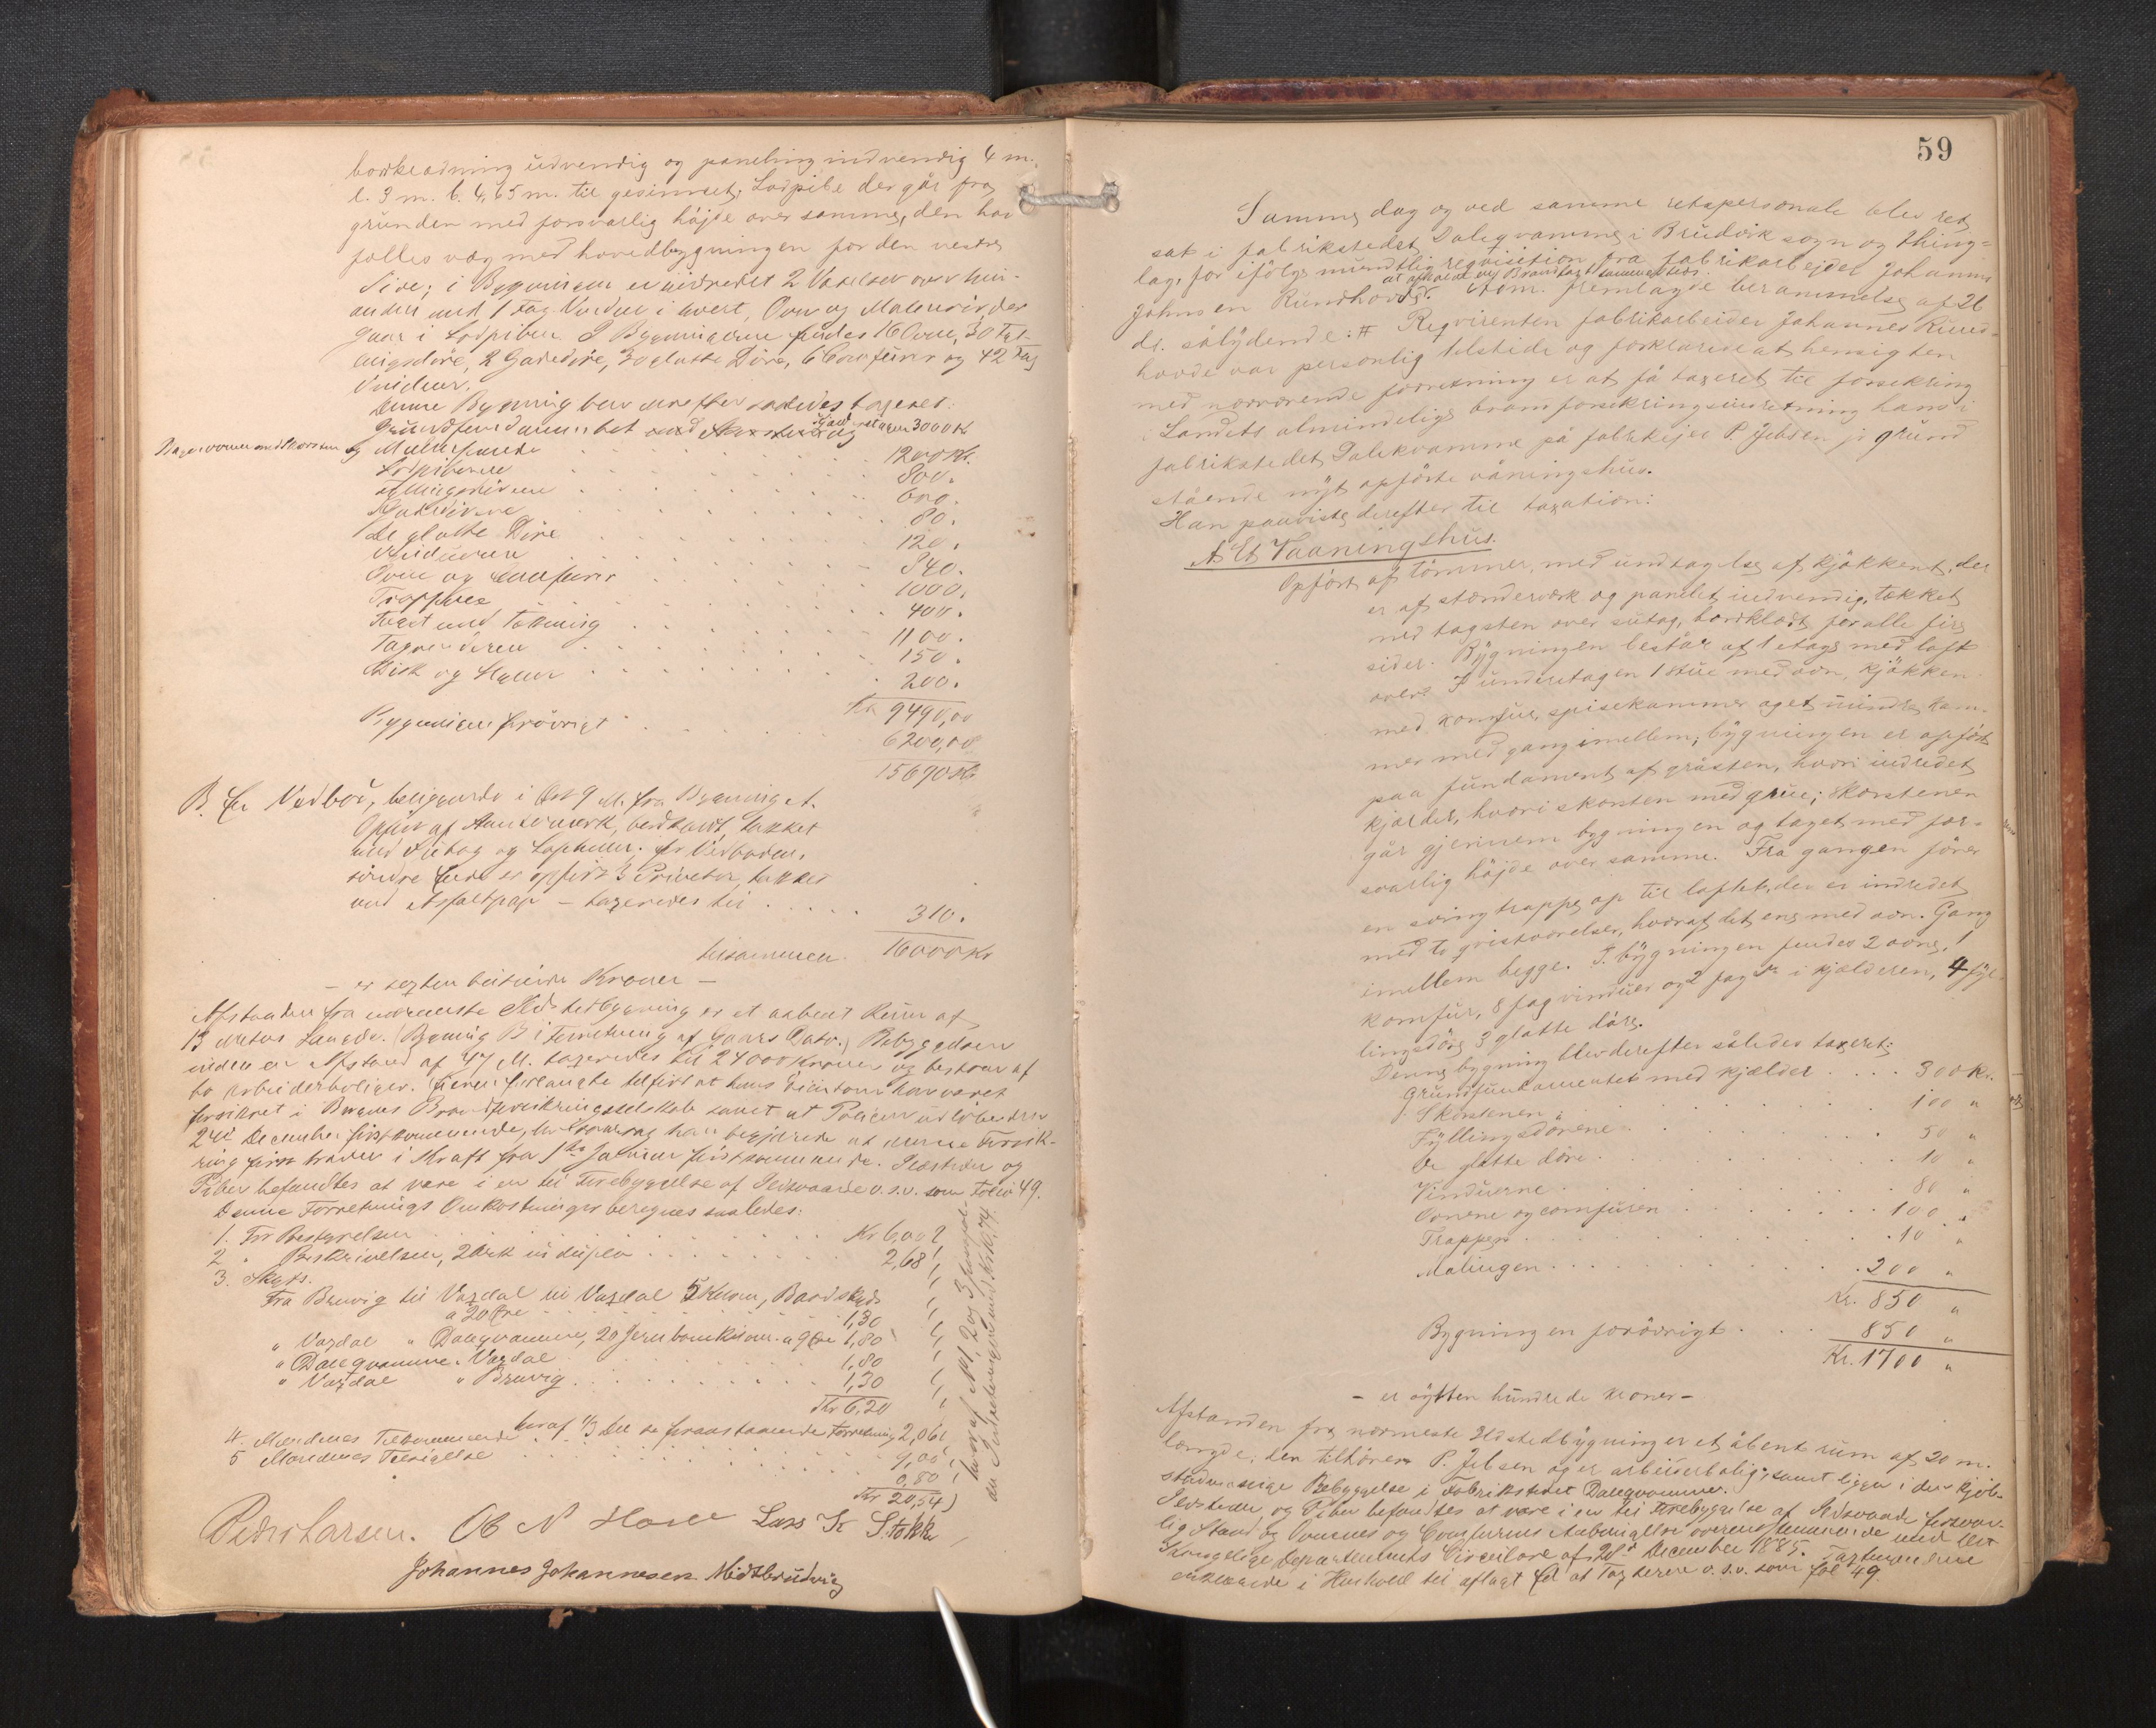 bordklædning udvendig og paneling indvendig 4 m.
l. 3 m. b. 4,65 m. til gesimset; Lodpibe der går fra
grunden med forsvarlig höjde over samme, den har
følles væg med hovedbygningen for den vestre
Side; i Bygningen er indredet 2 Værelser over hin-
anden med 1 Fag Vinduer i hvert, Ovn og
gaar i Lodpiben. I Bygningerne findes 16 Ovne, 30 Fyl-
lingsdöre, 2 Gadedöre, 30 glatte Döre, 6 Comfurer og 42 Fag
Vinduer.
Denne Bygning blev derefter saaledes taxeret:
Grundfundamentet 3000 Kr
og Murerfundament 1200 Kr.
Lodpiberne 800.
Fyllingsdörene 600.
Gadedörene 80.
De glatte Döre 120.
Vinduerne 840.
Ovne og Comfurer 1000.
Trapper 400.
Taget med Tækning 1100.
Tagrenderen 150.
200.
Kr 9490,00
Bygningen forövrigt 6200,00
15690 Kr
B. En Vedbod, beliggende i Öst 9 M. fra Bygning A.
Opfört af Stænderværk, bordklædt, tækket
med Sutag og Lopheller. For Vedbodens
söndre Ende er opfört 3 Priveter, tækket
med Asfaltpap – taxeredes til 310.
tilsammen 16000 Kr
– er sexten tusinde Kroner –
Afstanden fra nærmeste Ildstedbygning er et aabent Rum af
13 Meters Længde. (Bygning B i Forretning af Gaars Dato.) Bebyggelsen
inden en Afstand af 47 M. taxeredes til 24000 Kroner og bestaar af
to Arbeiderboliger. Eieren forlangte tilfört at hans Eiendom har været
forsikret i Bergens Brandforsikringsselskab samt at Policen udlöber den
24de December förstkommende, hvorfor han begjærede at denne Forsik-
ring först træder i Kraft fra 1ste Januar förstkommende. Ildsteder og
Piber befandtes at være i en til Forebyggelse af Ildsvaade o.s.v. som Folio 49.
Denne Forretnings Omkostninger beregnes saaledes:
1. For Bestyrelsen Kr 6,00
2 " Beskrivelsen, 2 Ark in duplo 2,68
3. Skyds.
Fra Bruvig til Vaxdal 5 Kilom, Baadskyds
a 20 Öre 1,30
" Vaxdal " Dalegvamme, 20 Jernbanekilom. a 9 Öre 1,80
" Dalegvamme " Vaxdal 1,80
" Vaxdal " Bruvig 1,30
Kr 6,20
heraf 1/3 Del se foranstaaende Forretning 2,06
4. Mændenes Tilkommende 9,00
5 Mændenes Tilsigelse 0,80
Kr 20,54
Peder Larsen. Ob N Hove Lars K Stokke
Johannes Johannesen Midtbrudvig
59
Samme dag og ved samme retspersonale blev ret
sat i fabrikstedet Dalegvamme i Brudvik sogn og thing-
lag, for ifölge mundtlig reqvisition fra fabrikarbejder Johannes
at afholde ny Brandtaxt sammesteds.
Johnsen Rundhovde. Adm. fremlagde berammelse af 26
ds. sålydende: # Reqvirenten fabrikarbeider Johannes Rund-
hovde var personlig tilstede og forklarede at hensigten
med nærværende forretning er at få taxeret til forsikring
i Landets almindelige brandforsikringsindretning hans i
fabrikstedet Dalekvamme på fabrikejer P. Jebsen jr grund
stående nyt opförte våningshus.
Han paaviste derefter til taxation:
A Et Vaaningshus.
Opfört af tömmer, med undtagelse af kjökkenet, der
er af stænderværk og panelet indvendig, tækket
med tagsten over sutag, bordklædt for alle fire
sider. Bygningen består af 1 etage med loft
over. I underetagen 1 stue med ovn, kjökken
med komfur, spisekammer og et mindre kam-
mer med gang imellem; bygningen er opfört
paa fundament af gråsten, hvori indredet
kjælder, hvori skorsten med grue; skorstenen
går gjennem bygningen og taget med for-
svarlig höjde over samme. Fra gangen förer
en svingtrappe op til loftet, der er indredet
med to qvistværelser, hvoraf det ene med ovn. Gang
imellem begge. I bygningen findes 2 ovne, 1
komfur, 8 fag vinduer og 2 fag Do i kjælderen, 4 fyl-
lingsdöre 3 glatte döre.
Denne bygning blev derefter således taxeret:
Grundfundamentet med kjælder 300 Kr.
Skorstenen 100 "
Fyllingsdörene 50 "
De glatte döre 10 "
Vinduerne 80 "
Ovnene og comfuren 100 "
Trappen 10 "
Malingen 200 "
Kr. 850 "
Bygningen forövrigt 850 "
Kr. 1700 "
– er sytten hundrede kroner –
Afstanden fra nærmeste Ildstedbygning er et åbent rum af 20 m.
længde; den tilhörer P. Jebsen og er arbeiderbolig; samt ligger i den kjöb-
stadmæssige Bebyggelse i Fabrikstedet Dalegvamme.
Ildsteder og Piber befandtes at være i en til Forebyggelse af Ildsvaade forsvar-
lig Stand og Ovnenes og Comfurens Anbringelse overensstemmende med det
Kongelige Departements Circulære af 28de December 1885. Taxtmændene
erklærede i Henhold til aflagt Ed at Taxterne o.s.v. som fol 49.